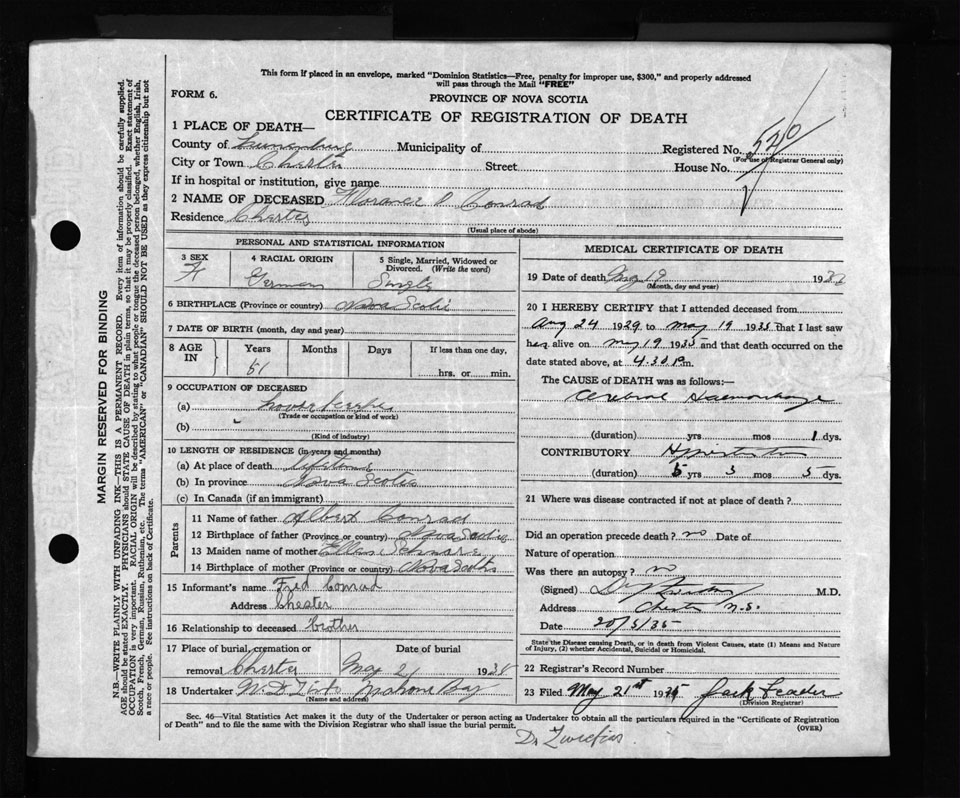 This form if placed in an envelope, marked "Dominion Statistics—Free, penalty for improper use, $300," and properly addressed
will pass through the Mail "FREE"
FORM 6.
PROVINCE OF NOVA SCOTIA
CERTIFICATE OF REGISTRATION OF DEATH
1 PLACE OF DEATH—
County of Lunenburg Municipality of Registered No. 520
(For use of Registrar General only)
City or Town Chester Street House No.
If in hospital or institution, give name
2 NAME OF DECEASED Conrad
Residence Chester
(Usual place of abode)
PERSONAL AND STATISTICAL INFORMATION
3 SEX 4 RACIAL ORIGIN 5 Single, Married, Widowed or
Divorced. (Write the word)
F German Single
6 BIRTHPLACE (Province or country) Nova Scotia
7 DATE OF BIRTH (month, day and year)
8 AGE IN Years Months Days If less than one day,
51 hrs. or min.
9 OCCUPATION OF DECEASED
(a) housekeeper
(Trade or occupation or kind of work)
(b)
(Kind of industry)
10 LENGTH OF RESIDENCE (in years and months)
(a) At place of death lifetime
(b) In province Nova Scotia
(c) In Canada (if an immigrant)
Parents
11 Name of father Albert Conrad
12 Birthplace of father (Province or country) Nova Scotia
13 Maiden name of mother Ellen
14 Birthplace of mother (Province or country) Nova Scotia
15 Informant's name Fred Conrad
Address Chester
16 Relationship to deceased brother
17 Place of burial, cremation or Date of burial
removal Chester May 21 1935
18 Undertaker W. D. Mahone Bay
(Name and address)
MEDICAL CERTIFICATE OF DEATH
19 Date of death May 19 193
(Month, day and year)
20 I HEREBY CERTIFY that I attended deceased from
Aug 24 1929 to May 19 1935 that I last saw
her alive on May 19 1935 and that death occurred on the
date stated above, at 4.30 P.m.
The CAUSE of DEATH was as follows:—
Cerebral Haemorrhage
(duration) yrs mos 1 dys.
CONTRIBUTORY Hypertension
(duration) 5 yrs 3 mos 5 dys.
21 Where was disease contracted if not at place of death?
Did an operation precede death? no Date of
Nature of operation
Was there an autopsy? no
(Signed) M.D.
Address Chester N.S.
Date 20/5/35
State the Disease causing Death, or in death from Violent Causes, state (1) Means and Nature
of Injury, (2) whether Accidental, Suicidal or Homicidal.
22 Registrar's Record Number
23 Filed May 21st 1935 Jack Leader
(Division Registrar)
Sec. 46—Vital Statistics Act makes it the duty of the Undertaker or person acting as Undertaker to obtain all the particulars required in the "Certificate of Registration
of Death" and to file the same with the Division Registrar who shall issue the burial permit.
(OVER)
Dr
MARGIN RESERVED FOR BINDING
N.B.—WRITE PLAINLY WITH UNFADING INK—THIS IS A PERMANENT RECORD. Every item of information should be carefully supplied.
AGE should be stated EXACTLY. PHYSICIANS should STATE CAUSE OF DEATH in plain terms, so that it may be properly classified. Exact statement of
OCCUPATION is very important. RACIAL ORIGIN will be described by stating to what people or tongue the deceased person belonged, whether English, Irish,
Scotch, French, German, Russian, Ruthenian, etc. The terms "AMERICAN" or "CANADIAN" SHOULD NOT BE USED as they express citizenship but not
a race or people. See instructions on back of Certificate.